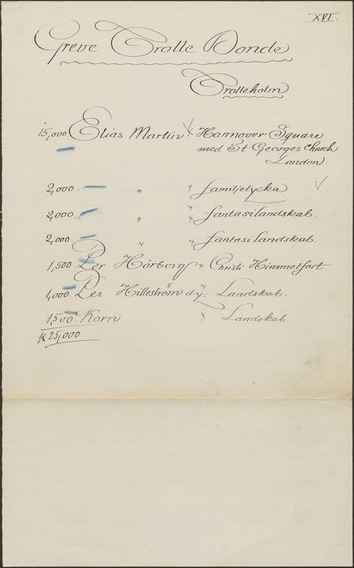 XVI.
Greve Trolle Bonde
Trolleholm
15,000 Elias Martin Hannover Square
med St Georges Church
London
2,000 " " familjelycka
2,000 " " fantasilandskab.
2,000 " " fantasi landskab.
1,500 Per Hörberg " Christi Himmelsfärt
1,000 Per Hilleström d.y. Landskab.
1,500 Korn " Landskab.
Kr 25,000